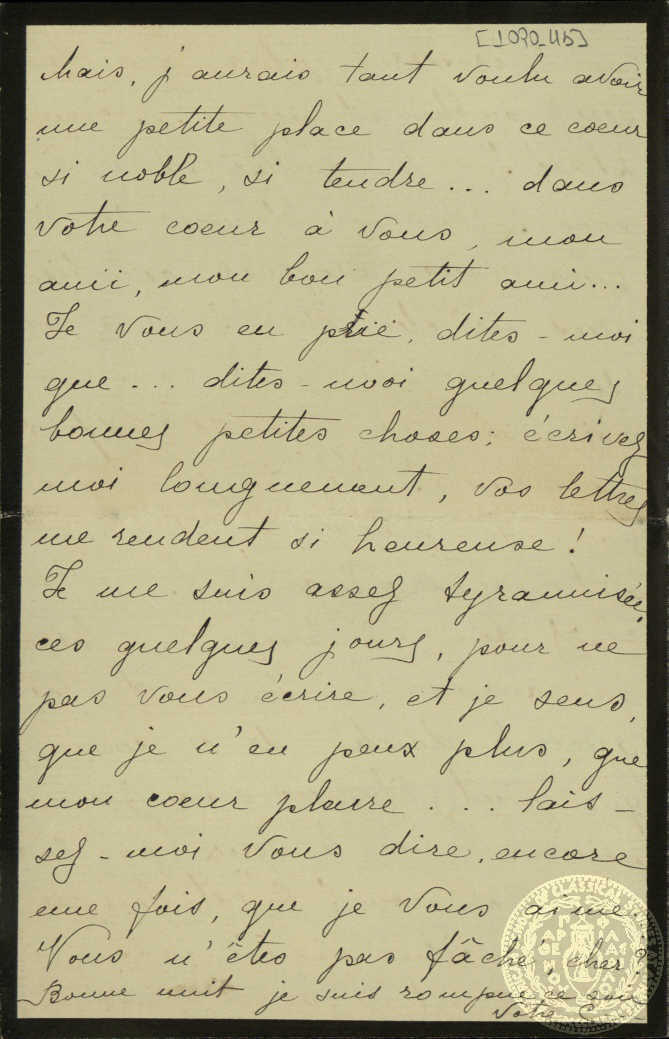 [1090_115]
Mais, j'aurais tant voulu avoir
une petite place dans ce coeur
si noble, si tendre... dans
votre coeur à vous, mon
ami, mon bon petit ami...
Je vous en prie, dites-moi
que... dites-moi quelques
bonnes petites choses; écrivez
moi longuement, vos lettres
me rendent si heureuse!
Je me suis assez tyrannisée,
ces quelques jours, pour ne
pas vous écrire, et je sens,
que je n'en peux plus, que
mon coeur pleure... lais-
sez-moi vous dire, encore
une fois, que je vous aime.
Vous n'êtes pas fâché, cher?
Bonne nuit je suis rompue ce soir
Votre C
CLASSICAL